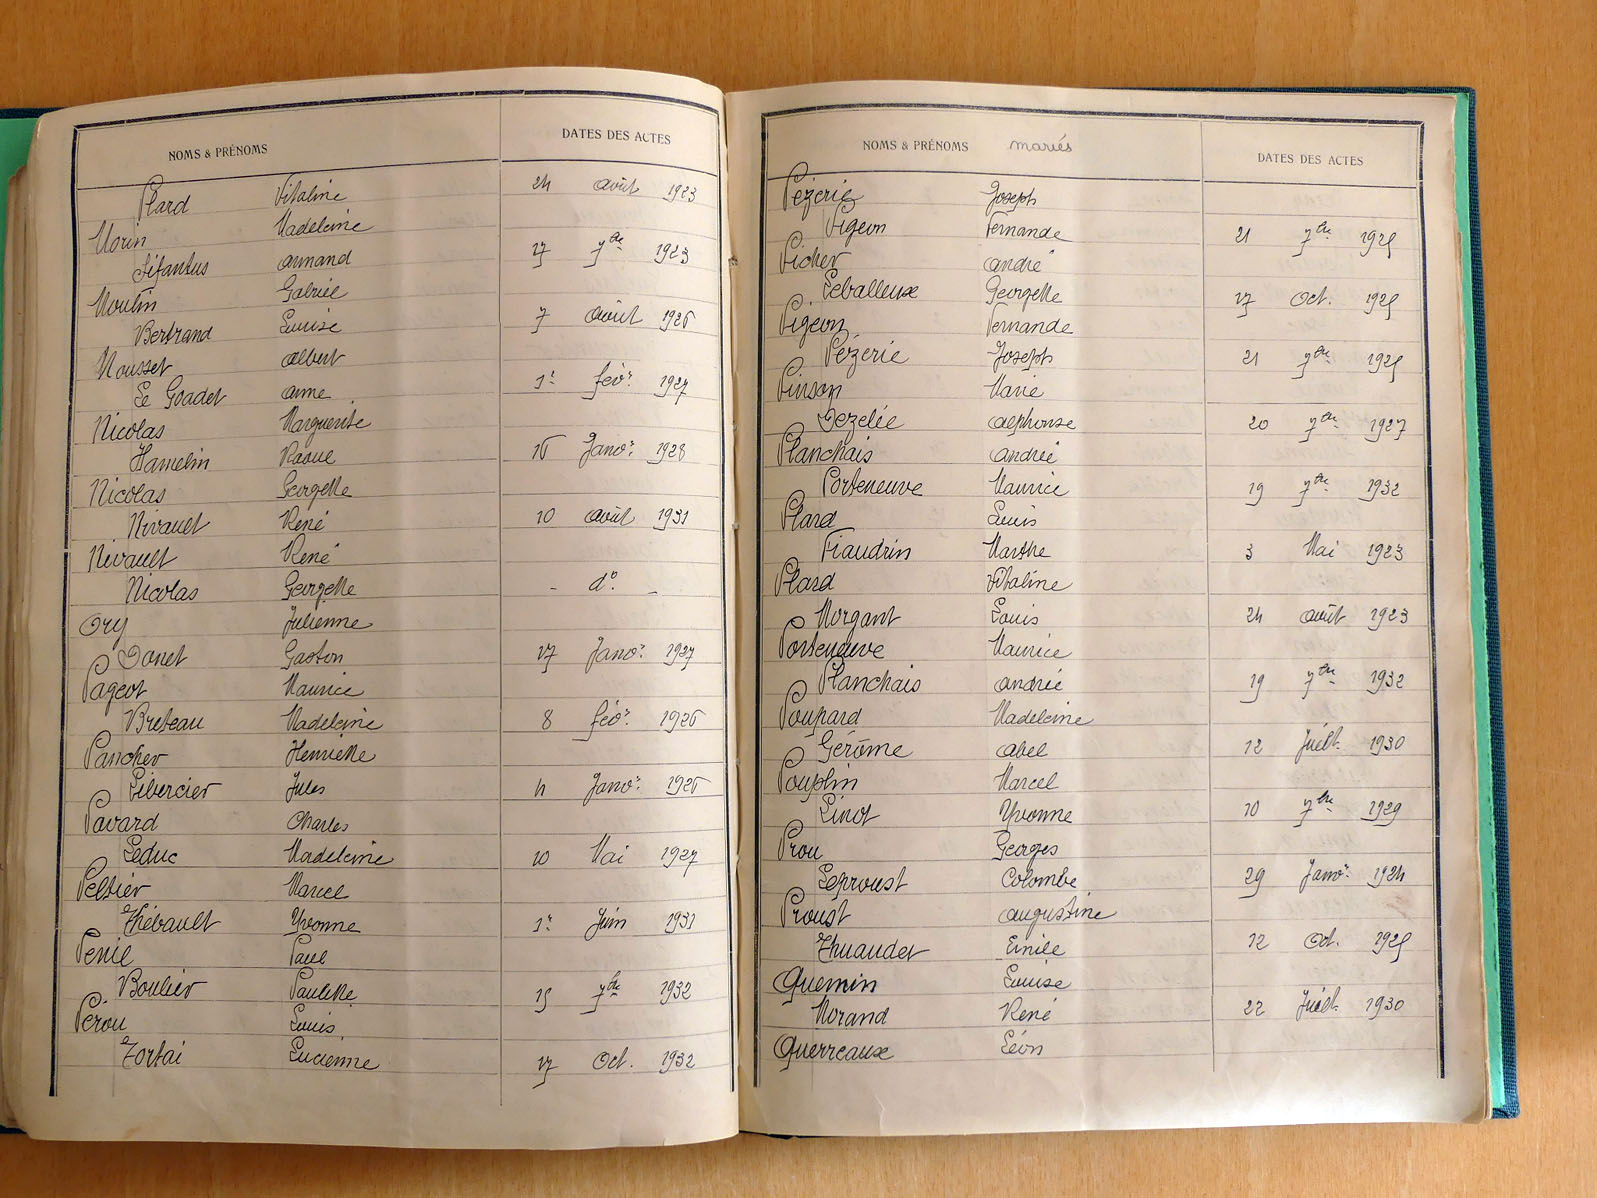 NOMS & PRÉNOMS DATES DES ACTES
Plard Vitaline 24 août 1923
Morin Madeleine
Sifantus armand 17 7bre 1923
Moulin Gabriel
Bertrand Louise 7 août 1926
Mousset albert
Le Goadet anne 1er fevr. 1927
Nicolas Marguerite
Hamelin Raoul 16 Janvr. 1928
Nicolas Georgette
Nivault René 10 août 1931
Nivault René
Nicolas Georgette - do. -
Ory Julienne
Donet Gaston 17 Janvr. 1927
Pageot Maurice
Breteau Madeleine 8 févr. 1926
Pancher Henriette
Libercier Jules 4 Janvr. 1926
Pavard Charles
Leduc Madeleine 10 Mai 1927
Peltier Marcel
Thébault Yvonne 1er Juin 1931
Penil Paul
Boulier Paulette 15 7bre 1932
Pérou Louis
Tortai Lucienne 17 Oct. 1932
NOMS & PRÉNOMS mariés DATES DES ACTES
Pézerie Joseph
Pigeon Fernande 21 7bre 1925
Picher andré
Leballeux Georgette 17 Oct. 1925
Pigeon Fernande
Pézerie Joseph 21 7bre 1925
Pinson Marie
Dezelée alphonse 20 7bre 1927
Planchais andrée
Porteneuve Maurice 19 7bre 1932
Plard Louis
Fiaudrin Marthe 3 Mai 1923
Plard Vitaline
Morgant Louis 24 août 1923
Porteneuve Maurice
Planchais andrée 19 7bre 1932
Poupard Madeleine
Gérôme abel 12 Juillt. 1930
Pouplin Marcel
Linot Yvonne 10 7bre 1929
Prou Georges
Leproust Colombe 29 Janvr. 1924
Proust augustine
Thuaudet Emile 12 Oct. 1925
Quemin Louise
Morand René 22 Juillt. 1930
Querreaux Léon